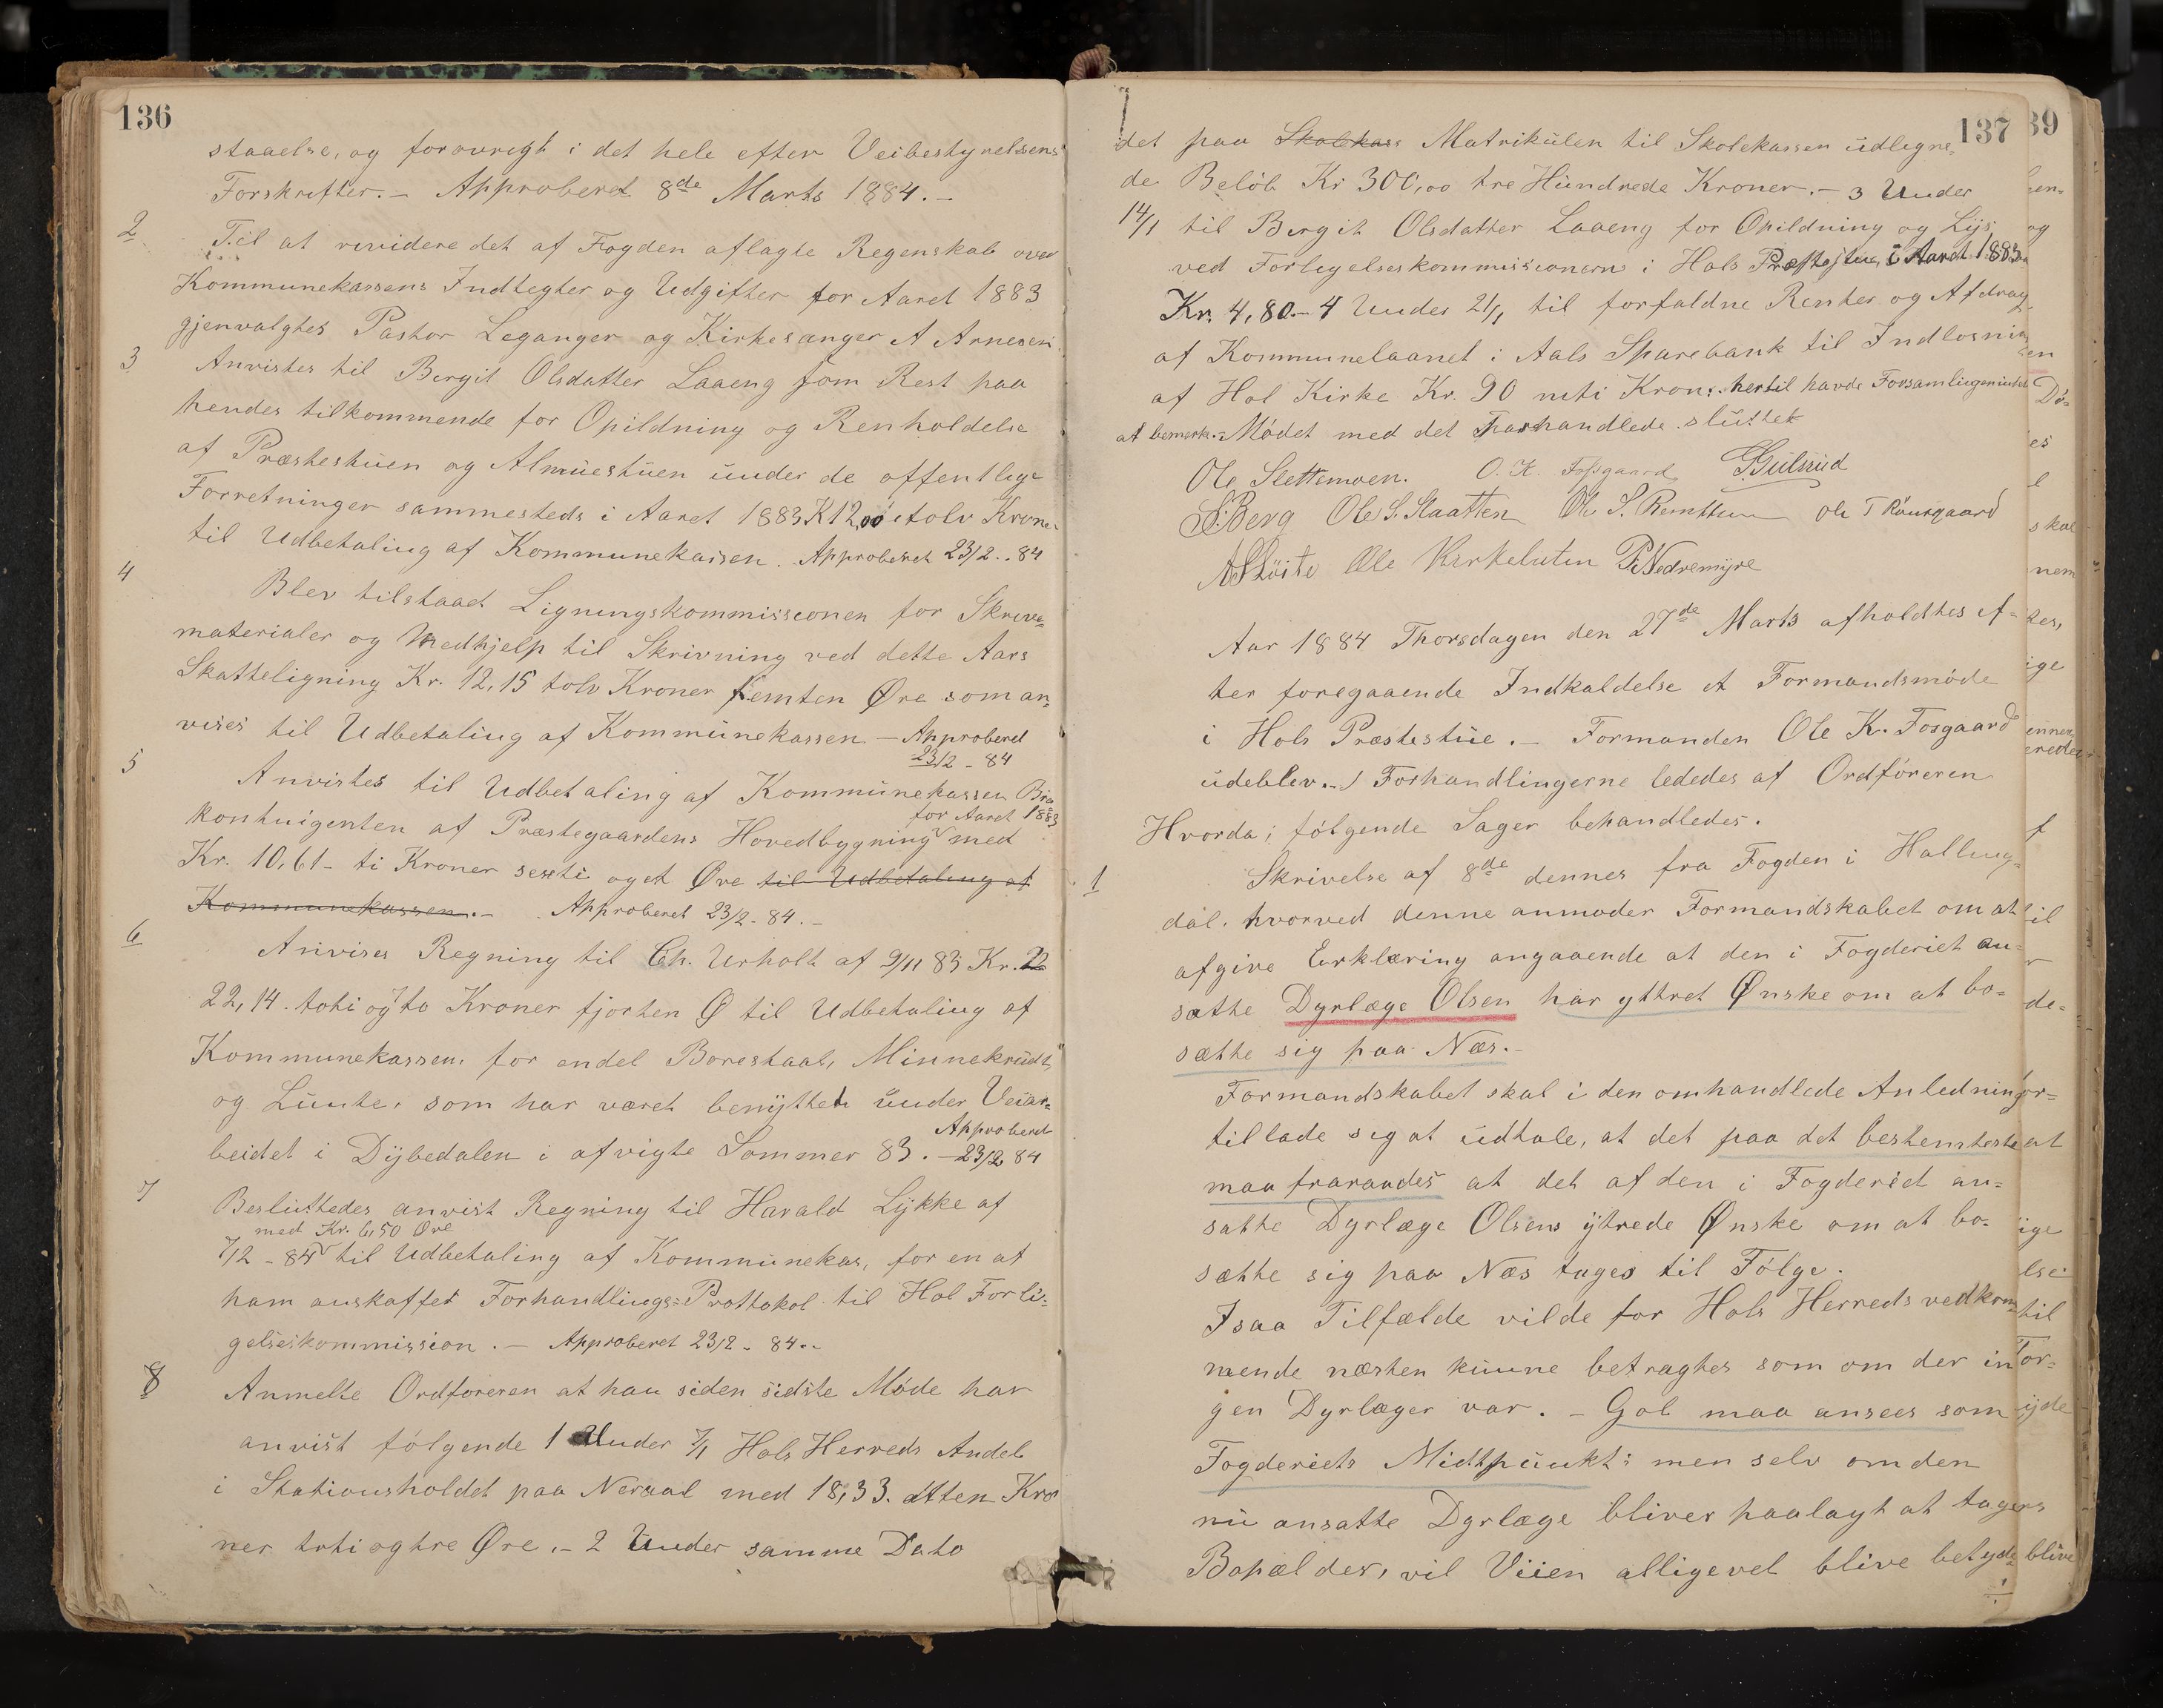 136
staaelse, og forøvrigt i det hele efter Veibestyrelsens
Forskrifter. – Approberet 8de Marts 1884. –
2 Til at revidere det af Fogden aflagte Regenskab over
Kommunekassens Indtegter og Udgifter for Aaret 1883
gjenvalgtes Pastor Leganger og Kirkesanger A Arnesen.
3 Anvistes til Birgit Olsdatter Laaeng som Rest paa
hendes tilkommende for Opildning og Renholdelse
af Præstestuen og Almuestuen under de offentlige
Forretninger sammesteds i Aaret 1883 K 12,00 tolv Kroner
til Udbetaling af Kommunekassen. Approberet 23/2 - 84
4 Blev tilstaaet Ligningskommissionen for Skrive-
materialer og Medhjelp til Skrivning ved dette Aars
Skatteligning Kr. 12,15 tolv Kroner femten Øre som an-
vises til Udbetaling af Kommunekassen – Approberet
23/2 - 84
5 Anvistes til Udbetaling af Kommunekassen
for Aaret 1883
kontuigenten af Præstegaardens Hovedbygning med
Kr. 10,61 - ti Kroner sexti oget Øre til Udbetaling af
Kommunekassen. – Approberet 23/2 - 84. –
6 Anvises Regning til Ch. Urholt af 9/11 83 Kr. 22
22,14. toti og to Kroner fjorten Ø til Udbetaling af
Kommunekassen for endel Borestaal, Minnekrudt
og Lunte, som har været benyttet under Veiar-
Approberet
beidet i Dybedalen i afvigte Sommer 83. – 23/2 84
7 Besluttedes anvist Regning til Harald Lykke af
med Kr. 6,50 Øre
7/12 - 84 til Udbetaling af Kommunekas, for en af
ham anskaffet Forhandlings-Prottokol til Hol Forli-
gelseskommission. – Approberet 23/2 - 84. -
8 Anmelte Ordføreren at han siden sidste Møde har
anvist følgende 1 Under 7/1 Hols Herreds Andel
i Stationsholdet paa Neraal med 18,33. Atten Kro
ner trti og tre Øre. – 2 Under samme Dato
137
39
det paa Skolekass Matrikulen til Skolekassen udligne-
de Beløb Kr 300,00 tre Hundrede Kroner. – 3 Under
14/1 til Birgit Olsdatter Laaeng for Opildning og Lys
ved Forligelseskommissionern i Hols Præstestue i Aaret 1883
Kr. 4,80. – 4 Under 21/1 til forfaldne Renter og Afdrag
af Kommunelaanet i Aals Sparebank til Indløsning
af Hol Kirke Kr. 90 niti Kron: hertil havde Forsamlingen intet
at bemerk. – Mødet med det Forhandlede sluttet
Ole Slettemoen. O. K. Fossgaard Gulsrud
S. Berg Ole S. Slaatten Ole S. Ole T Raunsgaard
Ole Kirkeluten P Nedremyre
Aar 1884 Thorsdagen den 27de Marts afholdtes ef-
ter foregaaende Indkaldelse et Formandsmøde
i Hols Præstestue. – Formanden Ole K. Fosgaard
udeblev. –) Forhandlingerne lededes af Ordføreren
Hvorda, følgende Sager behandledes.
1 Skrivelse af 8de dennes fra Fogden i Halling-
dal. hvorved denne anmoder Formandskabet om at
afgive Erklæring angaaende at den i Fogderiet an-
satte Dyrlæge Olsen har yttret Ønske om at bo-
sætte sig paa Næs. –
Formandskabet skal i den omhandlede Anledning
tillade sig at udtale, at det paa det bestemteste
maa fraraades at det af den i Fogderiet an-
satte Dyrlæge Olsens ytrede Ønske om at bo-
sætte sig paa Næs tages til Følge.
I saa Tilfælde vilde for Hols Herreds vedkom-
mende næsten kunne betragtes som om der in
gen Dyrlæger var. – Gol maa ansees som
Fogderiets Midtpunkt; men selv om den
nu ansatte Dyrlæge bliver paalagt at tage
Bopæl der, vil Viien alligevel blive betyde-